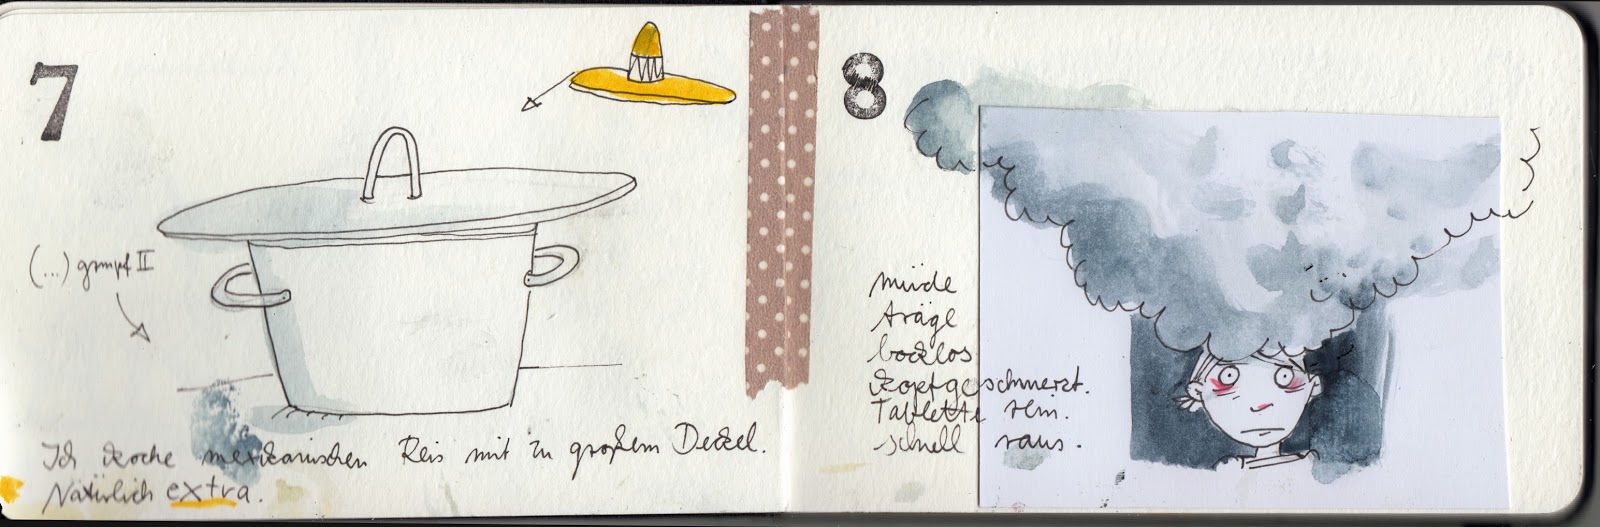 7
(...) grmpf II
Ich koche mexikanischen Reis mit zu großem Deckel.
Natürlich extra.
8
müde
träge
bocklos
kopfgeschmerzt.
Tablette rein.
schnell raus.